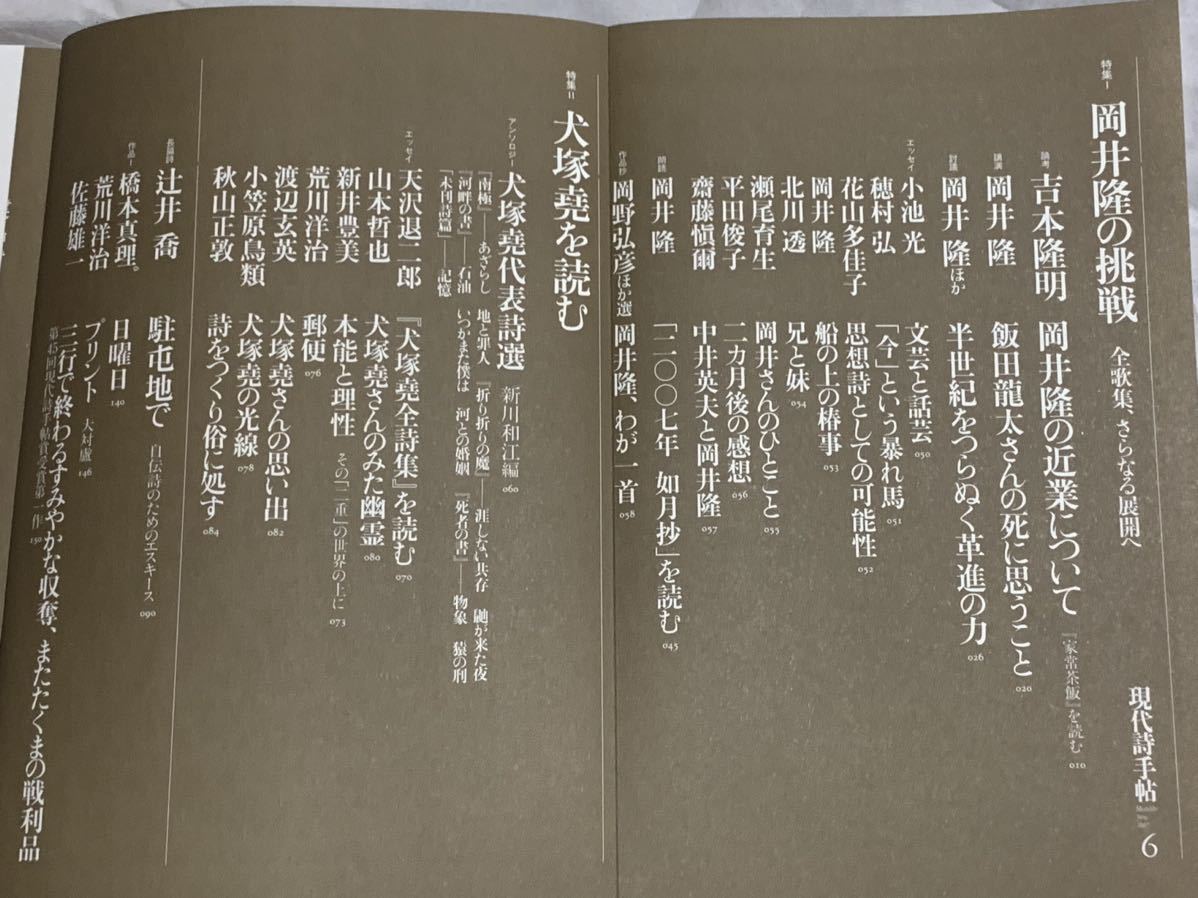 現代詩手帖 6
特集I 岡井隆の挑戦 全歌集、さらなる展開へ
論考 吉本隆明 岡井隆の近業について 『家常茶飯』を読む 010
講演 岡井 隆 飯田龍太さんの死に思うこと 020
討議 岡井 隆ほか 半世紀をつらぬく革進の力 026
エッセイ 小池 光 文芸と話芸 050
穂村 弘 「今」という暴れ馬 051
花山多佳子 思想詩としての可能性 052
岡井 隆 船の上の椿事 053
北川 透 兄と妹 054
瀬尾育生 岡井さんのひとこと 055
平田俊子 二カ月後の感想 056
齋藤愼爾 中井英夫と岡井隆 057
朗読 岡井 隆 「二〇〇七年 如月抄」を読む 045
作品抄 岡野弘彦ほか選 岡井隆、わが一首 058
特集II 犬塚堯を読む
アンソロジー 犬塚堯代表詩選 新川和江編 060
『南極』――あざらし 地と罪人 『折り折りの魔』――涯しない共存 鼬が来た夜
『河畔の書』――石油 いつかまた僕は 河との婚姻 『死者の書』――物象 猿の刑
「未刊詩篇」――記憶
エッセイ 天沢退二郎 『犬塚堯全詩集』を読む 070
山本哲也 犬塚堯さんのみた幽霊 080
新井豊美 本能と理性 その「二重」の世界の上に 073
荒川洋治 郵便 076
渡辺玄英 犬塚堯さんの思い出 082
小笠原鳥類 犬塚堯の光線 078
秋山正敦 詩をつくり俗に処す 084
長篇詩 辻井 喬 駐屯地で 自伝詩のためのエスキース 090
作品I 橋本真理。 日曜日 140
荒川洋治 プリント 大対盧 146
佐藤雄一 三行で終わるすみやかな収奪、またたくまの戦利品
第45回現代詩手帖賞受賞第一作 150